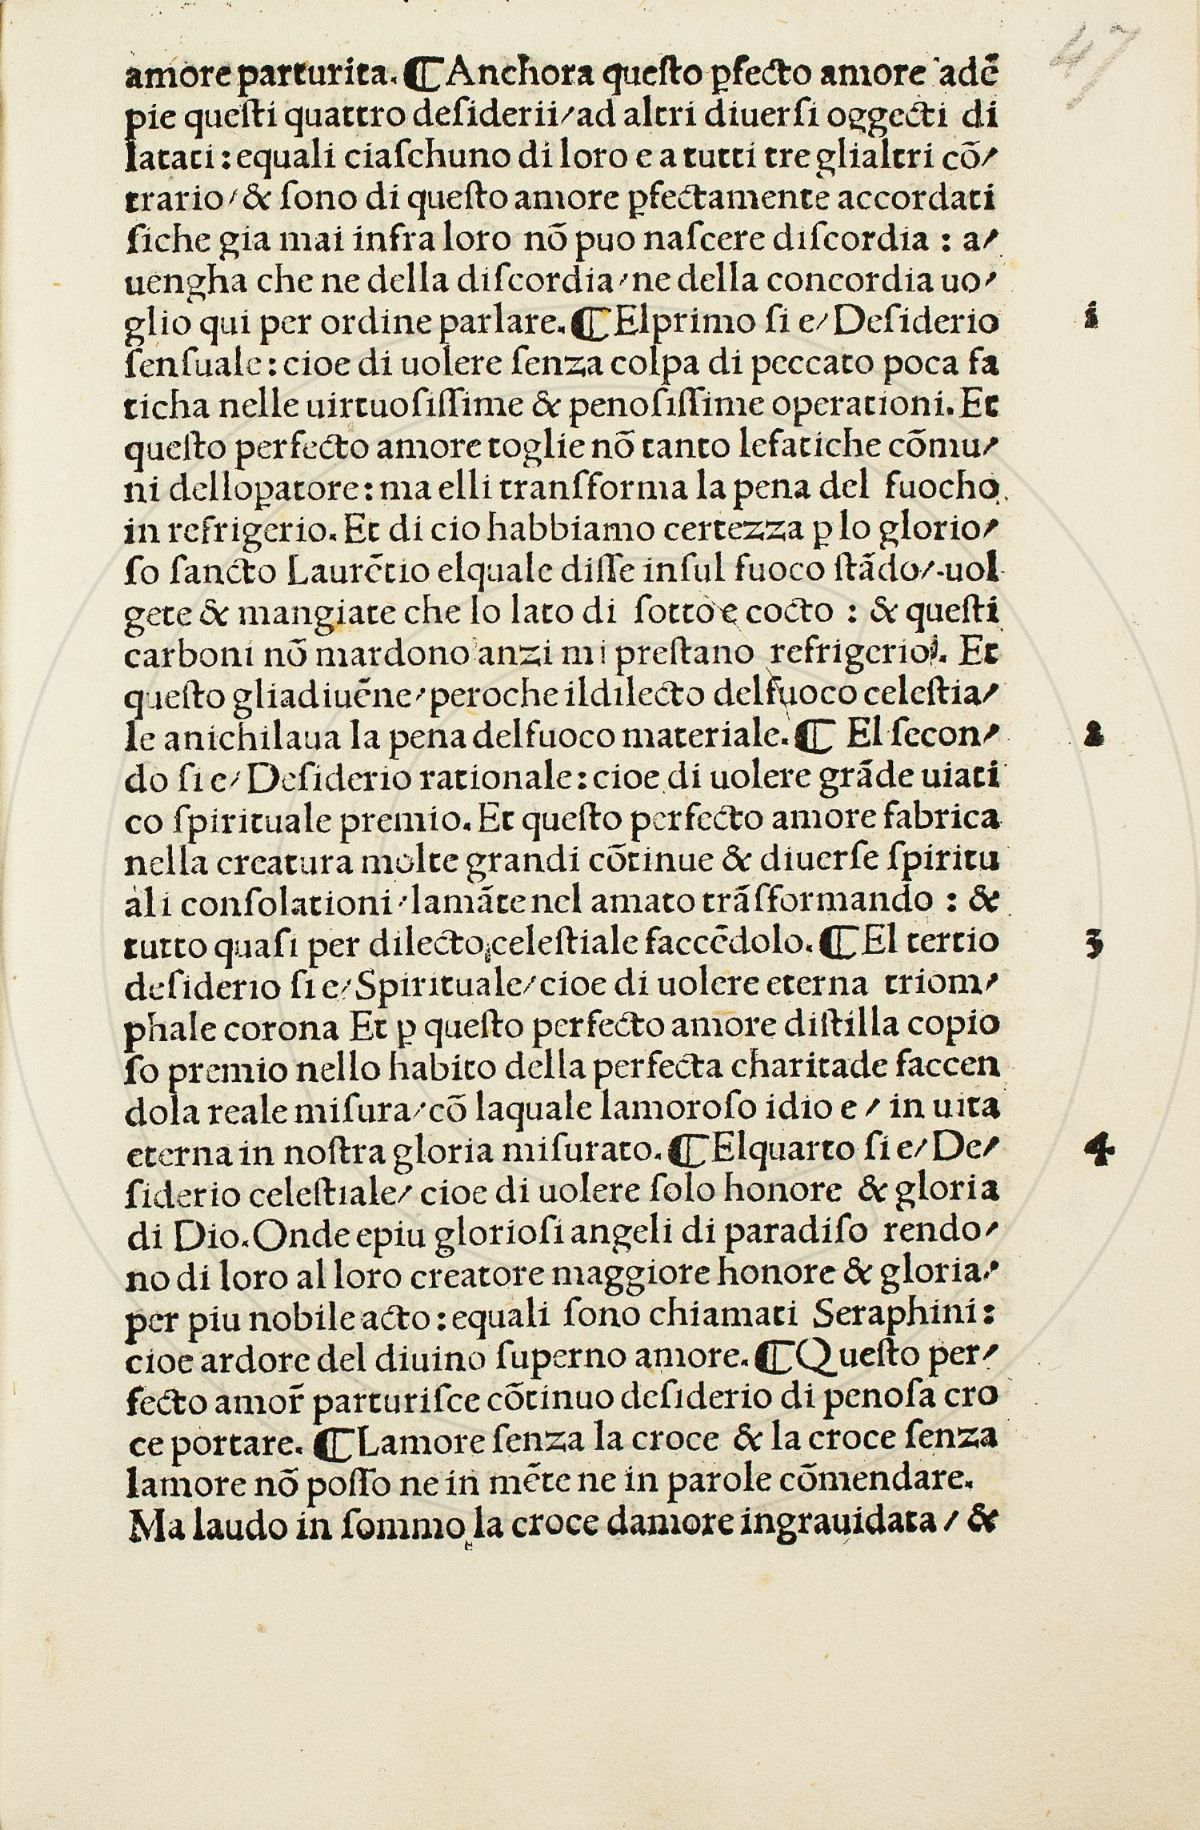 47
amore parturita. ¶ Anchora queſto ꝑfecto amore adē
pie queſti quattro deſiderii/ad altri diuerſi oggecti di
latati: equali ciaſchuno di loro e a tutti tre glialtri cō/
trario/& ſono di queſto amore ꝑfectamente accordati
ſiche gia mai infra loro nō puo naſcere diſcordia : a/
uengha che ne della diſcordia/ne della concordia uo/
glio qui per ordine parlare. ¶ Elprimo ſi e/ Deſiderio 1
ſenſuale: cioe di uolere ſenza colpa di peccato poca fa
ticha nelle uirtuoſiſſime & penoſiſſime operationi. Et
queſto perfecto amore toglie nō tanto lefatiche cōmu/
ni delloꝑatore: ma elli tranſforma la pena del fuocho
in refrigerio. Et di cio habbiamo certezza ꝑ lo glorio/
ſo ſancto Laurētio elquale diſſe inſul fuoco ſtādo/ uol
gete & mangiate che lo lato di ſotto e cocto : & queſti
carboni nō mardono anzi mi preſtano refrigerio. Et
queſto gliadiuēne/peroche ildilecto delfuoco celeſtia/
le anichilaua la pena delfuoco materiale. ¶ El ſecon/ 2
do ſi e/ Deſiderio rationale: cioe di uolere grāde uiati
co ſpirituale premio. Et queſto perfecto amore fabrica
nella creatura molte grandi cōtinue & diuerſe ſpiritu
ali conſolationi/lamāte nel amato trāſformando : &
tutto quaſi per dilecto celeſtiale faccēdolo. ¶ El tertio 3
deſiderio ſi e/ Spirituale/cioe di uolere eterna triom/
phale corona Et ꝑ queſto perfecto amore diſtilla copio
ſo premio nello habito della perfecta charitade faccen
dola reale miſura/cō laquale lamoroſo idio e / in uita
eterna in noſtra gloria miſurato. ¶ Elquarto ſi e/ De/ 4
ſiderio celeſtiale/ cioe di uolere ſolo honore & gloria
di Dio. Onde epiu glorioſi angeli di paradiſo rendo/
no di loro al loro creatore maggiore honore & gloria/
per piu nobile acto: equali ſono chiamati Seraphini:
cioe ardore del diuino ſuperno amore. ¶ Queſto per/
fecto amor̄ parturiſce cōtinuo deſiderio di penoſa cro
ce portare. ¶ Lamore ſenza la croce & la croce ſenza
lamore nō poſſo ne in mēte ne in parole cōmendare.
Ma laudo in ſommo la croce damore ingrauidata / &